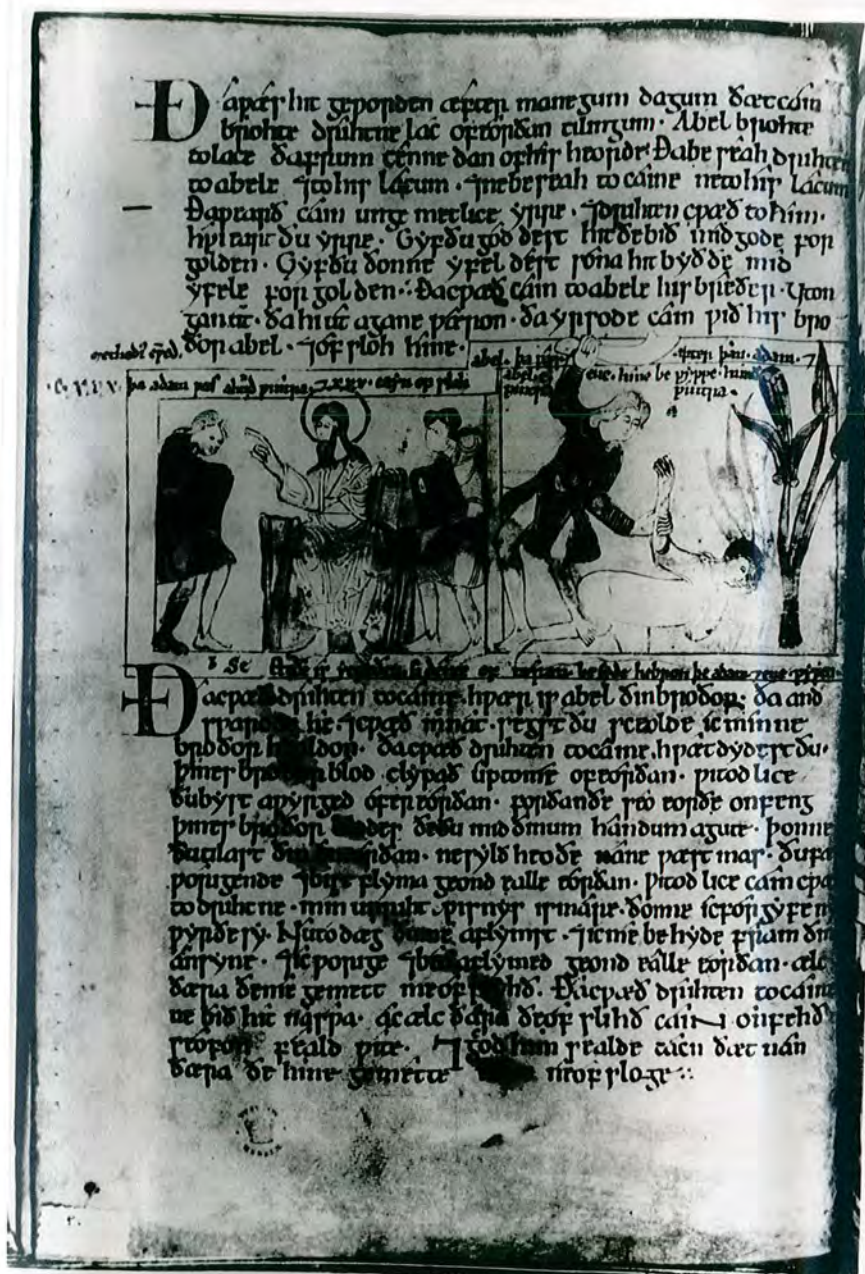 Ða ƿæs hit geƿorden æfter manegum dagum ðæt cáin
brohte drihtne lác of eorðan tilingum · Abel brohte
to lace ða frumcennedan of his heorde · Ða beseah drihten
to abele ⁊ to his lácum · ⁊ ne beseah to cáine ne to his lácum
Ða ƿearð cáin ungemetlice yrre · ⁊ drihten cƿæð to him ·
hƿi eart ðu yrre · Gyf ðu gód dest hit ðe bið mid gode for
golden · Gyf ðu ðonne yfel dest sona hit byð ðe mid
yfele forgolden · Ða cƿæð cáin to abele his breðer · Uton
gan út · ða hi út agane ƿæron · ða yrsode cáin ƿið his bro
ðor abel · ⁊ ofsloh hine ·
þa adam ƿæs ƿintra · ⁊ xxx · caym ofsloh
abel · þa
æfter þam · adam · ⁊
eue · hine be
ƿintra ·
hebron be adam ⁊ eue
Ða cƿæð drihten to cáine · hƿær is abel ðin broðor · ða and
sƿarode he · ⁊ cƿæð ic nát · segst ðu sceolde ic minne
broðor healdon · ða cƿæð drihten to caine · hƿæt dydest ðu ·
þines broðor blod clypað up to me of eorðan · ƿitodlice
ðu byst aƿyrged ofer eorðan · forðan ðe seo eorðe onfeng
þines broðor blodes ðe ðu mid ðinum handum agute · þonne
ðu tilast ðin on eorðan · ne sylð heo ðe nane ƿæstmas · ðu fæ
ƿorugende ⁊ bist flyma geond ealle eorðan · ƿitodlice cáin cƿæ
to drihtne · min unriht ƿisnys is máre · ðonne ic forgyfen
ƿyrðe sy · Nu to dæg ðu me aflymst · ⁊ ic me behyde fram ðin
ansyne · ⁊ ic ƿoruge ⁊ beo aflymed geond ealle eorðan · ælc
ðæra ðe me gemett me ofslihð · Ða cƿæð drihten to cáine
ne bið hit na sƿa · ac ælc ðæra ðe ofslihð cáin onfehð
seofon feald ƿite · ⁊ god him sealde tácn ðæt nán
ðæra ðe hine gemette ne ofsloge